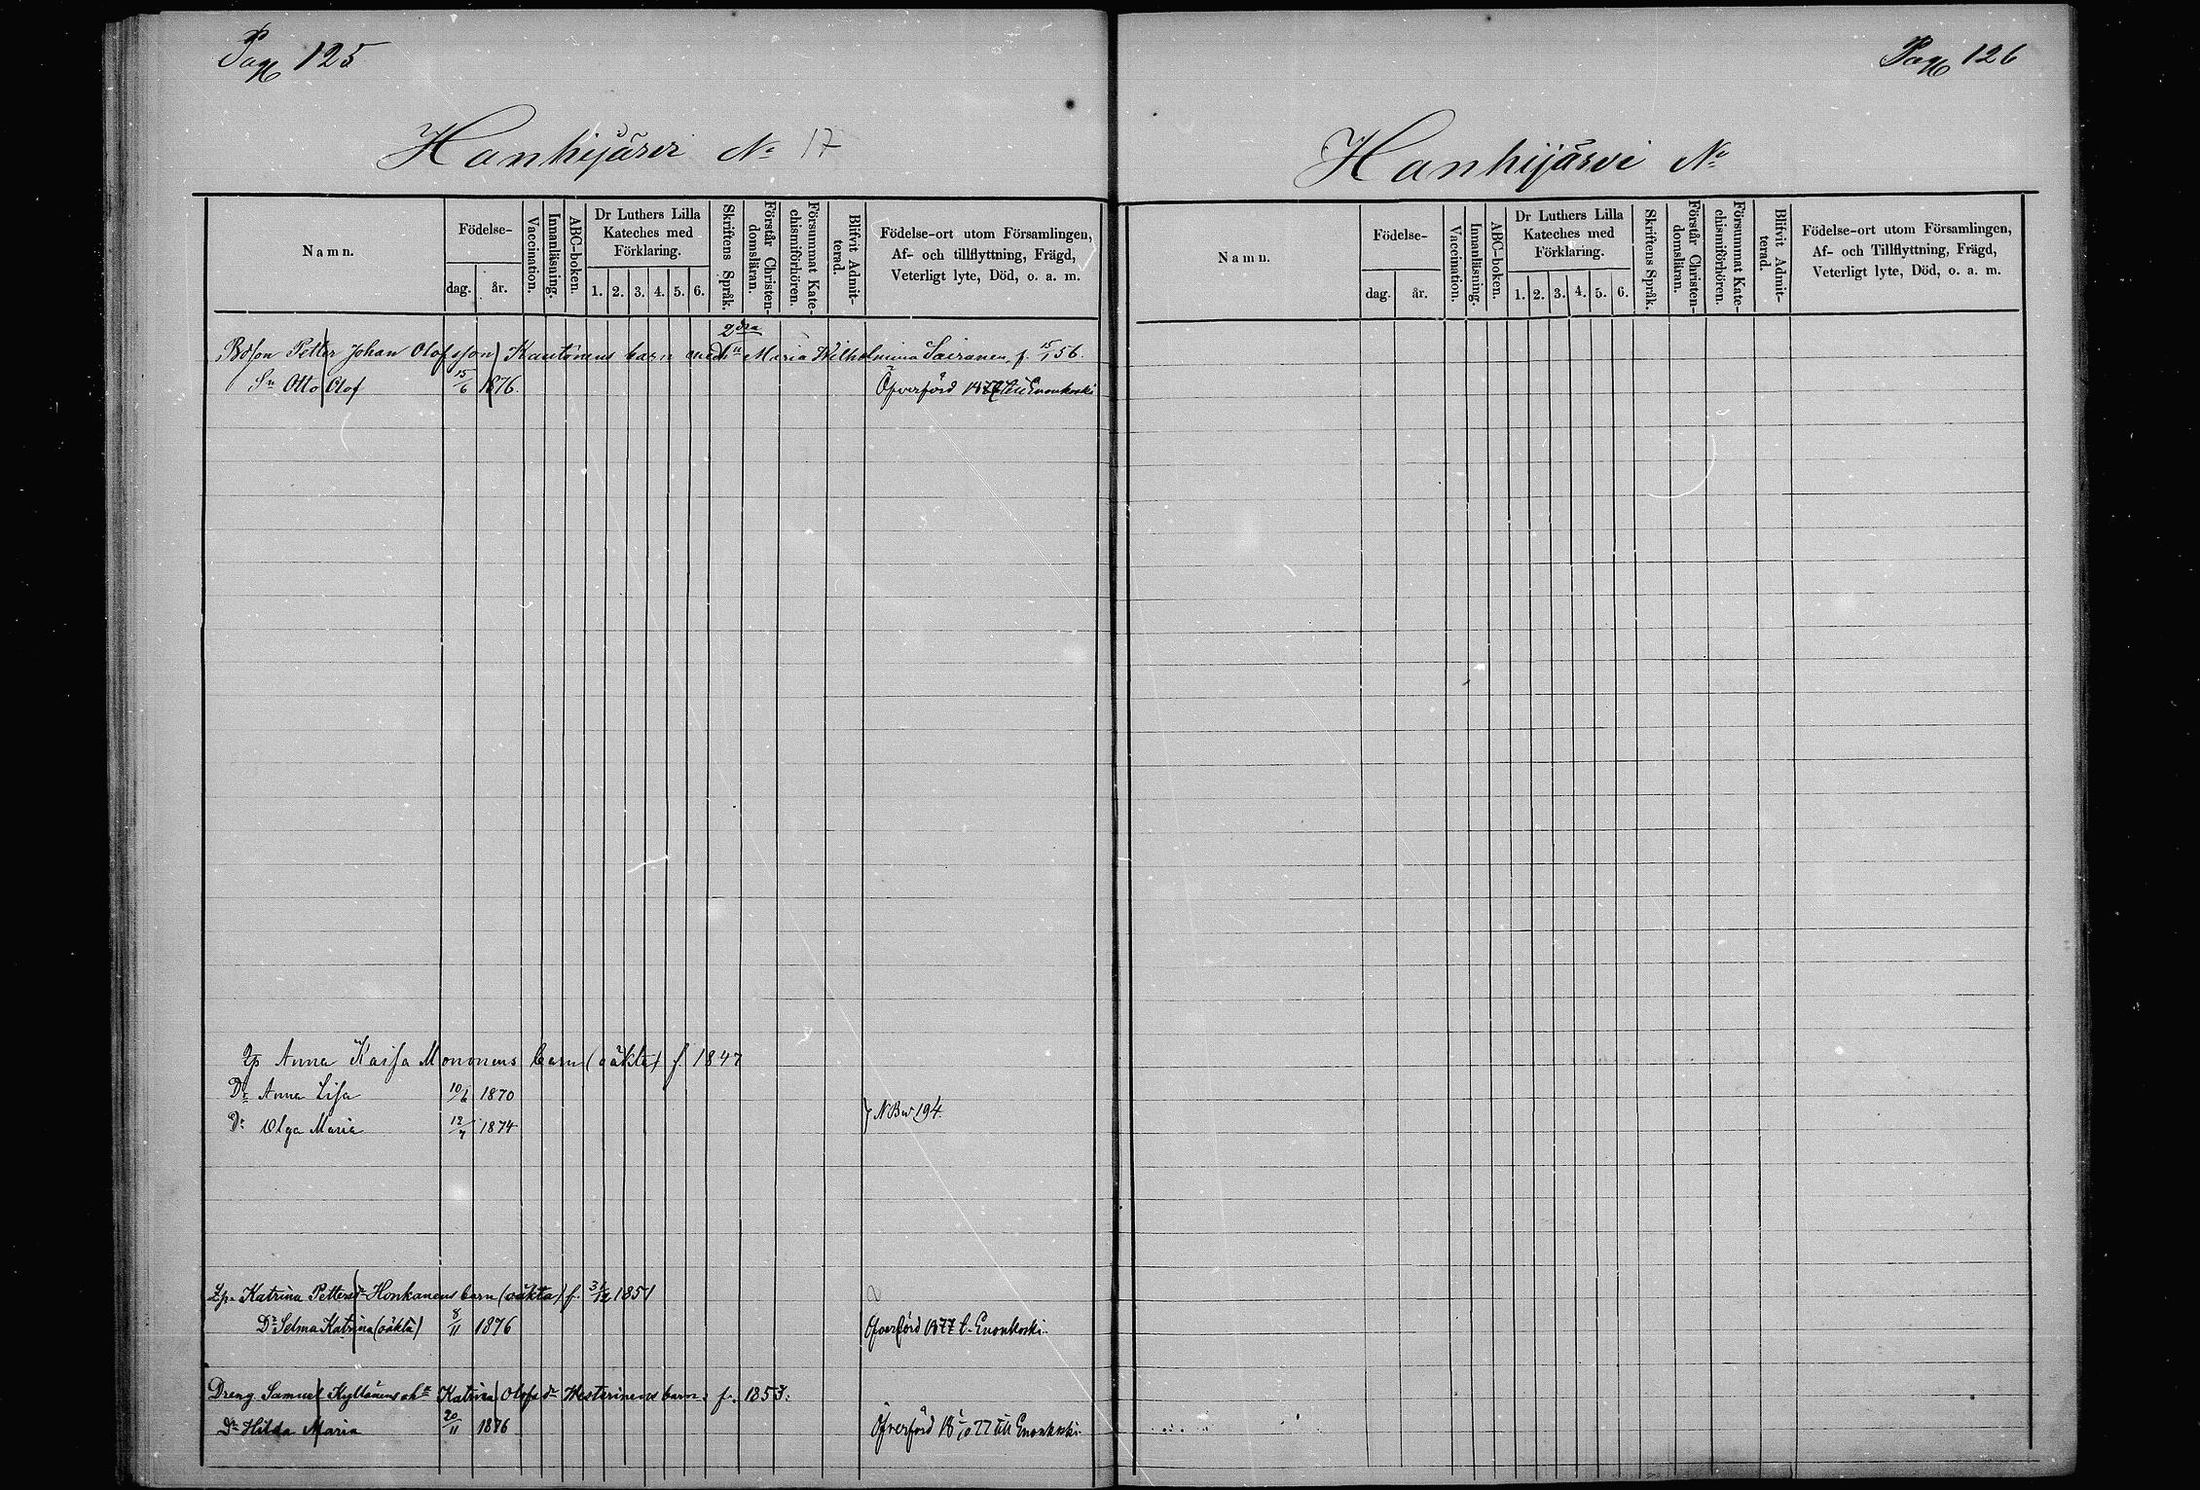 Pag 125
Hanhijärvi No 17
Namn.
Födelse-
dag.
år.
Vaccination.
Innanläsning.
ABC-boken.
Dr Luthers Lilla
Kateches med
Förklaring.
1. 2. 3. 4. 5. 6.
Skriftens Språk.
Förstår Christen-
domsläran.
Försummat Kate-
chismiförhören.
Blifvit Admit-
terad.
Födelse-ort utom Församlingen,
Af- och tillflyttning, Frägd,
Veterligt lyte, Död, o. a. m.
2dra
Petter Johan Olofsson barn med Maria Wilhelmina Sairanen, f. 15/1 56.
Sn Otto Olof 15/6 1876. Öfverförd 1877 till Enonkoski
Anna Kaisa Mononens barn (oäkta) f. 1847
Dr Anna Lisa 10/6 1870
Dr Olga Maria 12/7 1874
194.
Katrina Pettersdr Honkanens barn (oäkta) f. 1851
Dr Selma Katrina (oäkta) 8/11 1876 Öfverförd 1877 t. Enonkoski
Dreng Samuel Katrina Olofsdr Westerinens barn: f. 1853:
Dr Hilda Maria 20/11 1876 Öfverförd 77 till Enonkoski
Pag 126
Hanhijärvi No
Namn.
Födelse-
dag.
år.
Vaccination.
Innanläsning.
ABC-boken.
Dr Luthers Lilla
Kateches med
Förklaring.
1. 2. 3. 4. 5. 6.
Skriftens Språk.
Förstår Christen-
domsläran.
Försummat Kate-
chismiförhören.
Blifvit Admit-
terad.
Födelse-ort utom Församlingen,
Af- och Tillflyttning, Frägd,
Veterligt lyte, Död, o. a. m.